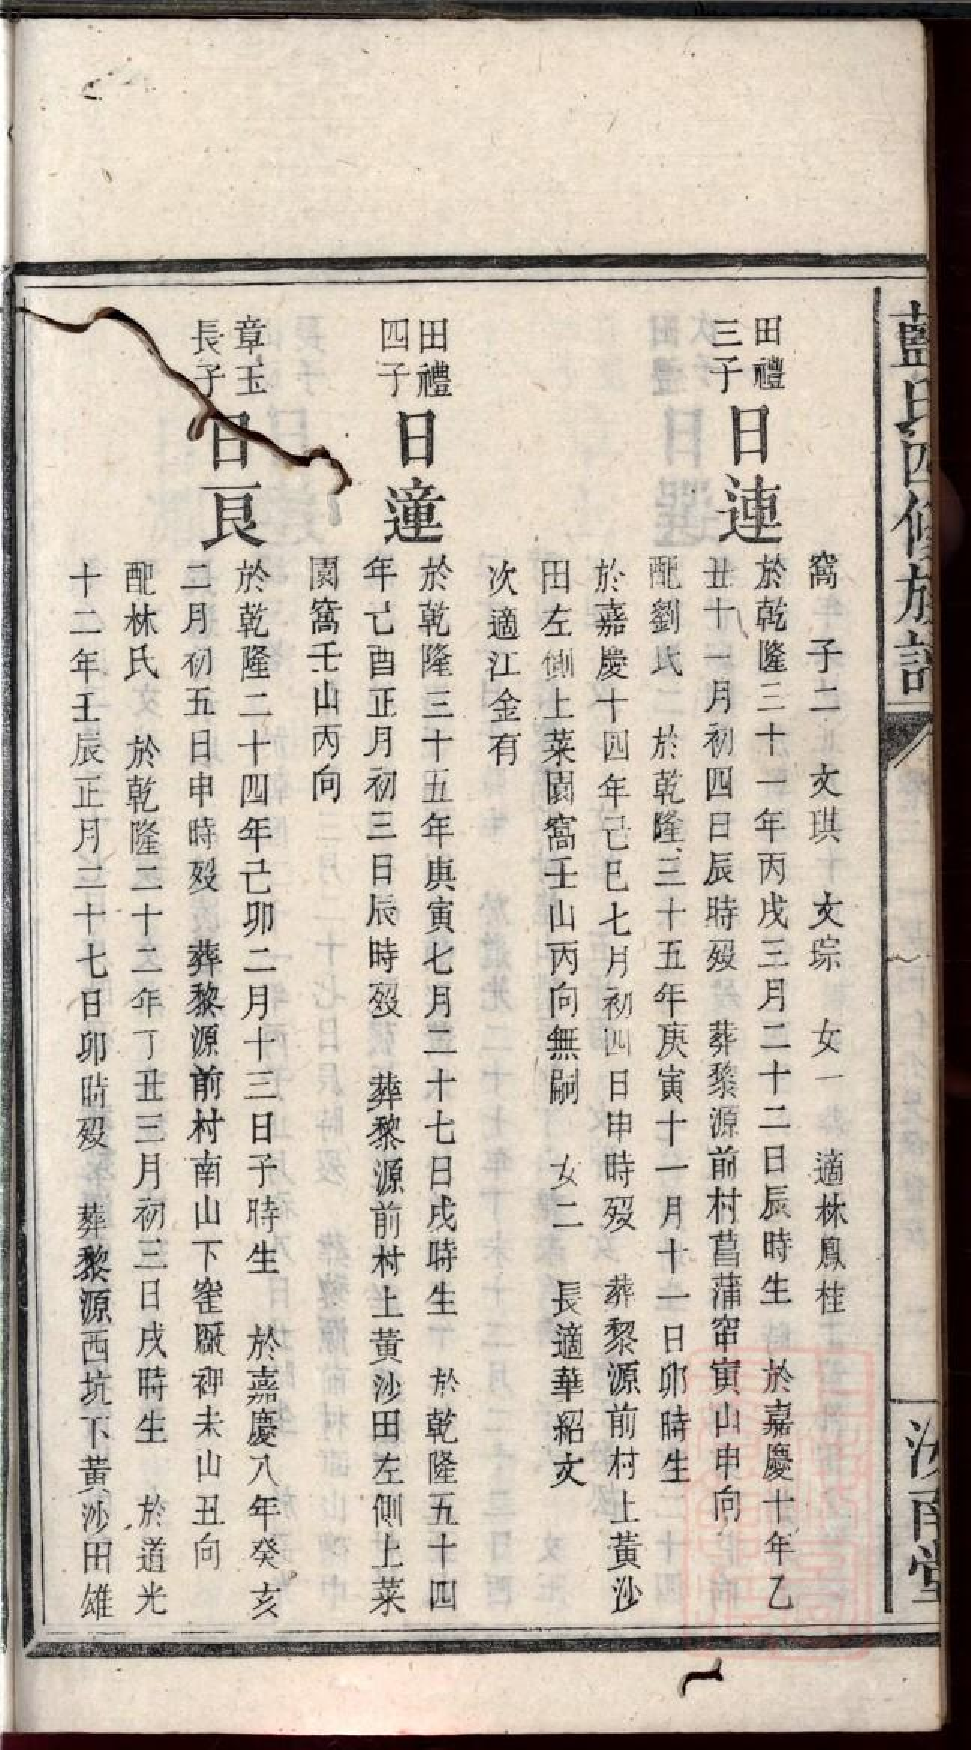 藍氏四修族譜
汝南堂
窩　子二　文琪　文琮　女一　適林鳳桂
田禮三子 日連 於乾隆三十一年丙戌三月二十二日辰時生　於嘉慶十年乙
丑十一月初四日辰時歿　葬黎源前村菖蒲窂寅山申向
配劉氏二　於乾隆三十五年庚寅十一月十一日卯時生
於嘉慶十四年己巳七月初四日申時歿　葬黎源前村上黃沙
田左側上菜園窩壬山丙向無嗣　女二　長適華紹文
次適江金有
田禮四子 日潼 於乾隆三十五年庚寅七月二十七日戌時生　於乾隆五十四
年己酉正月初三日辰時歿　葬黎源前村上黃沙田左側上菜
園窩壬山丙向
章玉長子 日良 於乾隆二十四年己卯二月十三日子時生　於嘉慶八年癸亥
二月初五日申時歿　葬黎源前村南山下窰廠神未山丑向
配林氏　於乾隆二十二年丁丑三月初三日戌時生　於道光
十二年壬辰正月二十七日卯時歿　葬黎源西坑下黃沙田雄